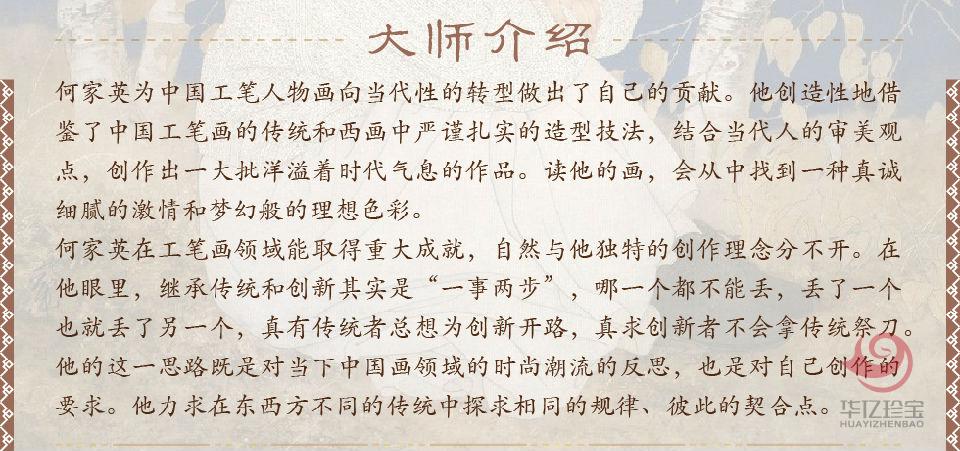 大师介绍
何家英为中国工笔人物画向当代性的转型做出了自己的贡献。他创造性地借
鉴了中国工笔画的传统和西画中严谨扎实的造型技法，结合当代人的审美观
点，创作出一大批洋溢着时代气息的作品。读他的画，会从中找到一种真诚
细腻的激情和梦幻般的理想色彩。
何家英在工笔画领域能取得重大成就，自然与他独特的创作理念分不开。在
他眼里，继承传统和创新其实是“一事两步”，哪一个都不能丢，丢了一个
也就丢了另一个，真有传统者总想为创新开路，真求创新者不会拿传统祭刀。
他的这一思路既是对当下中国画领域的时尚潮流的反思，也是对自己创作的
要求。他力求在东西方不同的传统中探求相同的规律、彼此的契合点。
华亿珍宝
HUAYIZHENBAO